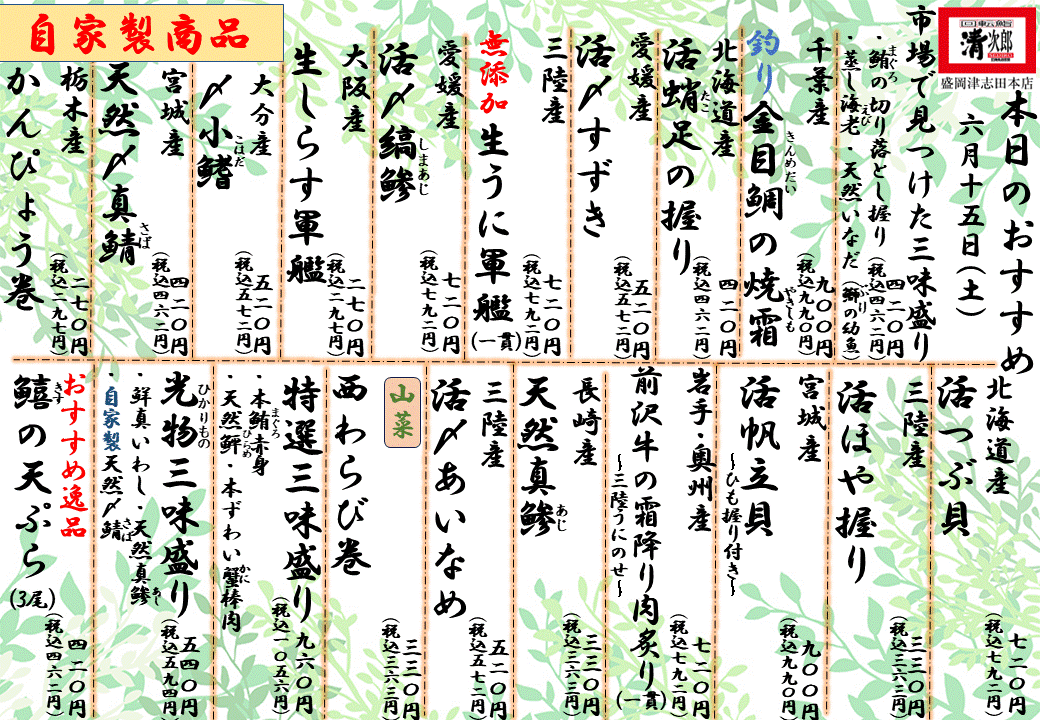 回転鮨
清次郎
盛岡津志田本店
本日のおすすめ
六月十五日(土)
市場で見つけた三味盛り
・鮪の切り落とし握り
まぐろ
・蒸し海老・天然いなだ(鰤の幼魚)
えび
ぶり
四二〇円
(税込四六二円)
千葉産
釣り金目鯛の焼霜
きんめだい
やきしも
九〇〇円
(税込九九〇円)
北海道産
活蛸足の握り
たこ
四二〇円
(税込四六二円)
愛媛産
活〆すずき
五二〇円
(税込五七二円)
三陸産
無添加生うに軍艦(一貫)
七二〇円
(税込七九二円)
愛媛産
活〆縞鯵
しまあじ
七二〇円
(税込七九二円)
大阪産
生しらす軍艦
二七〇円
(税込二九七円)
大分産
〆小鰭
こはだ
五二〇円
(税込五七二円)
宮城産
天然〆真鯖
さば
四二〇円
(税込四六二円)
栃木産
かんぴょう巻
二七〇円
(税込二九七円)
自家製商品
北海道産
活つぶ貝
七二〇円
(税込七九二円)
三陸産
活ほや握り
三三〇円
(税込三六三円)
宮城産
活帆立貝
~ひも握り付き~
九〇〇円
(税込九九〇円)
岩手・奥州産
前沢牛の霜降り肉炙り(一貫)
~三陸うにのせ~
七二〇円
(税込七九二円)
長崎産
天然真鯵
あじ
三三〇円
(税込三六三円)
三陸産
活〆あいなめ
五二〇円
(税込五七二円)
山菜
西わらび巻
三三〇円
(税込三六三円)
特選三味盛り
・本鮪赤身
まぐろ
・天然鮃・本ずわい蟹棒肉
ひらめ
かに
九六〇円
(税込一〇五六円)
光物三味盛り
ひかりもの
・鮮真いわし・天然真鯵
あじ
・自家製天然〆鯖
さば
五四〇円
(税込五九四円)
おすすめ逸品
鱚の天ぷら(3尾)
きす
四二〇円
(税込四六二円)